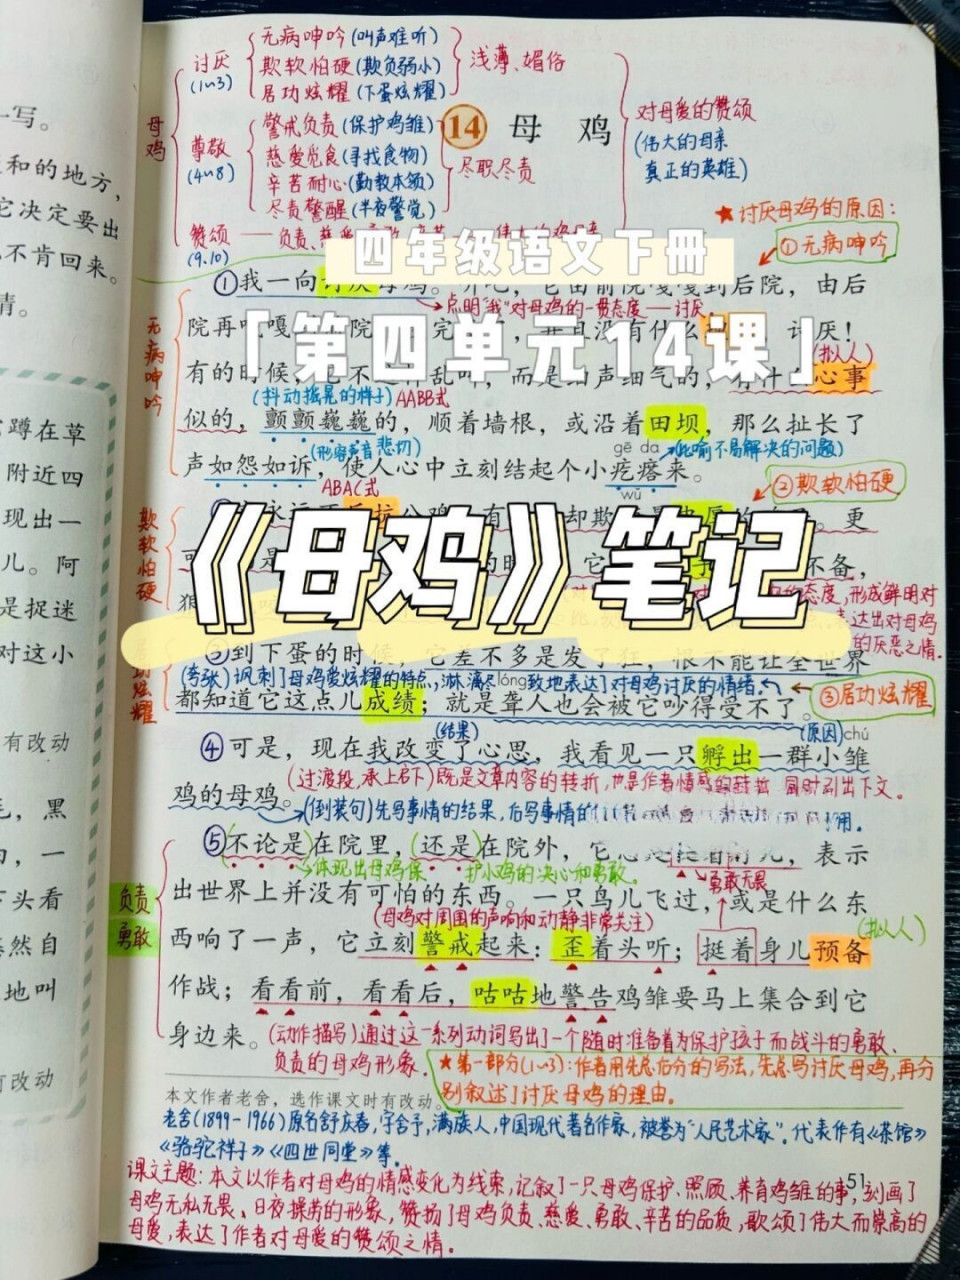 无病呻吟(叫声难听)
讨厌
(1~3)
欺软怕硬(欺负弱小)
浅薄、媚俗
居功炫耀(下蛋炫耀)
母鸡
尊敬
(4~8)
警戒负责(保护鸡雏)
慈爱觅食(寻找食物)
辛苦耐心(教本领)
尽责警醒(半夜警觉)
尽职尽责
赞颂
(9.10)
对母爱的赞颂
(伟大的母亲
真正的英雄)
14 母鸡
四年级语文下册
「第四单元14课」
《母鸡》笔记
★讨厌母鸡的原因:
①无病呻吟
①我一向讨厌母鸡。
嘎嘎到后院,由后
点明"我"对母鸡的一贯态度——讨厌。
讨厌!
无病呻吟
有的时候
而是细声细气的,
心事
(拟人)
(抖动摇晃的样子)AABB式
似的,颤颤巍巍的,顺着墙根,或沿着田坝,那么扯长了
(形容声音悲切)
gē da
比喻不易解决的问题)
声如怨如诉,使人心中立刻结起个小疙瘩来。
ABAC式
wǔ
②欺软怕硬
欺软怕硬
更
不备,
态度,形成鲜明对
达出对母鸡
的厌恶之情。
③到下蛋的时候,它差不多是发了狂,恨不能让全世界
(夸张)讽刺了母鸡爱炫耀的特点,淋漓尽致地表达了对母鸡讨厌的情绪。
lóng
③居功炫耀
都知道它这点儿成绩;就是聋人也会被它吵得受不了。
(结果)
(原因)
chú
④可是,现在我改变了心思,我看见一只孵出一群小雏
(过渡段,承上启下)既是文章内容的转折,也是作者情感的转折,同时引出下文。
鸡的母鸡。
(倒装句)先写事情的结果,后写事情的
⑤不论是在院里,还是在院外,它总是挺着脖儿,表示
体现出母鸡保护小鸡的决心和勇敢。
勇敢无畏
负责
勇敢
出世界上并没有可怕的东西。一只鸟儿飞过,或是什么东
(母鸡对周围的声响和动静非常关注)
(拟人)
西响了一声,它立刻警戒起来:歪着头听;挺着身儿预备
作战;看看前,看看后,咕咕地警告鸡雏要马上集合到它
身边来。
(动作描写)通过这一系列动词写出了一个随时准备着为保护孩子而战斗的勇敢、
负责的母鸡形象。
★第一部分(1~3):作者用先总后分的写法,先总写讨厌母鸡,再分
别叙述了讨厌母鸡的理由。
本文作者老舍,选作课文时有改动。
老舍(1899-1966)原名舒庆春,字舍予,满族人,中国现代著名作家,被誉为"人民艺术家"。代表作有《茶馆》
《骆驼祥子》《四世同堂》等。
51
课文主题:本文以作者对母鸡的情感变化为线索,记叙了一只母鸡保护、照顾、养育鸡雏的事,刻画了
母鸡无私无畏、日夜操劳的形象,赞扬了母鸡负责、慈爱、勇敢、辛苦的品质,歌颂了伟大而崇高的
母爱,表达了作者对母爱的赞颂之情。
写。
和的地方,
它决定要出
不肯回来。
情。
蹲在草
附近四
现出一
儿。阿
是捉迷
对这小
有改动
,黑
,一
下头看
然自
地叫
有改动